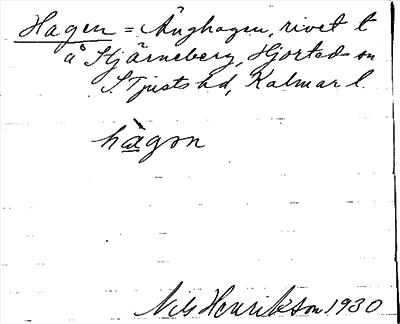 Hagen = Änghagen, rivet t
å Stjärneberg, Hjorted sn
S Tjusts hd, Kalmar l.
hàgon
Nils Henrikson 1930